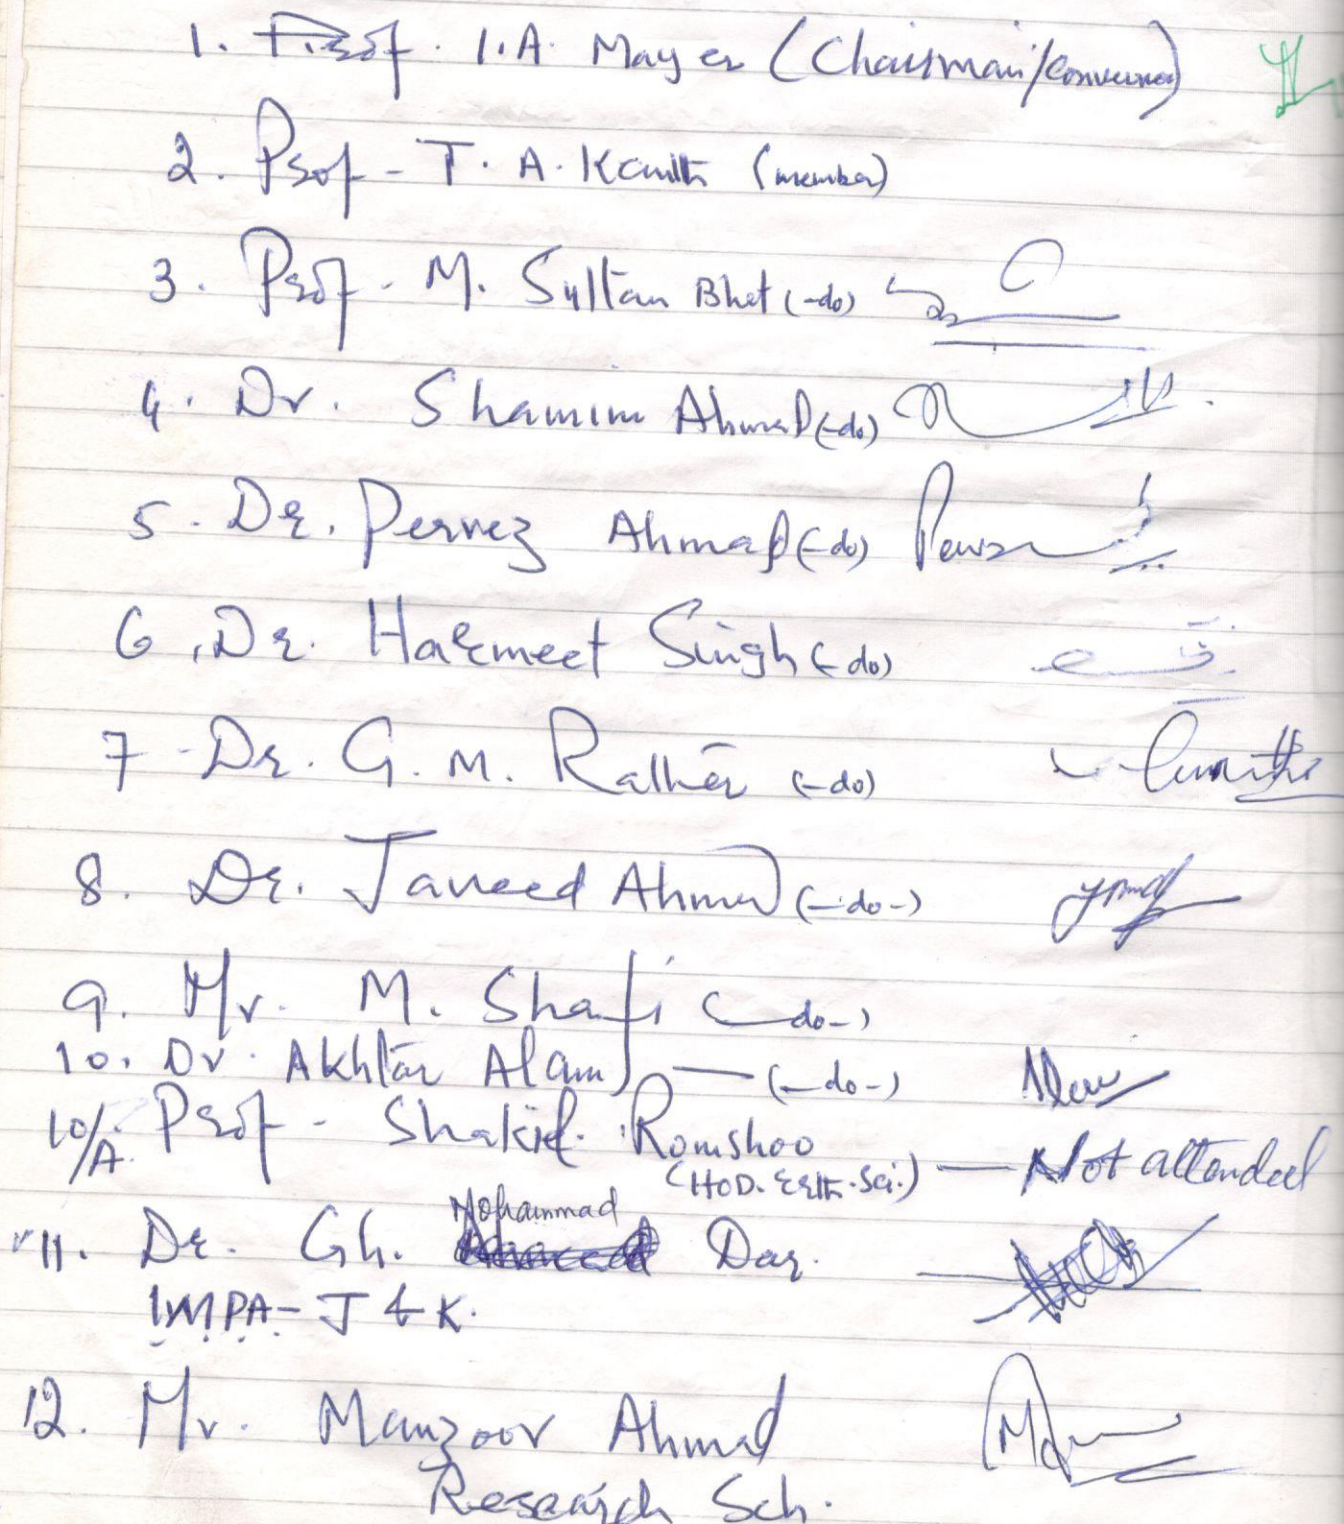 1. Prof. I.A. Mayer (Chairman/Convener)
2. Prof - T. A. Kanth (member)
3. Prof - M. Sultan Bhat (-do)
4. Dr. Shamim Ahmad (-do)
5. Dr. Pervez Ahmad (-do)
6. Dr. Harmeet Singh (-do)
7 - Dr. G. M. Rather (-do)
8. Dr. Javeed Ahmad (-do-)
9. Mr. M. Shafi (-do-)
10. Dr. Akhtar Alam — (-do-)
10/A. Prof - Shakil Romshoo — Not attended
(HOD. Erth. Sci.)
Mohammad
11. Dr. Gh. Dar.
IMPA - J & K.
12. Mr. Manzoor Ahmad
Research Sch.